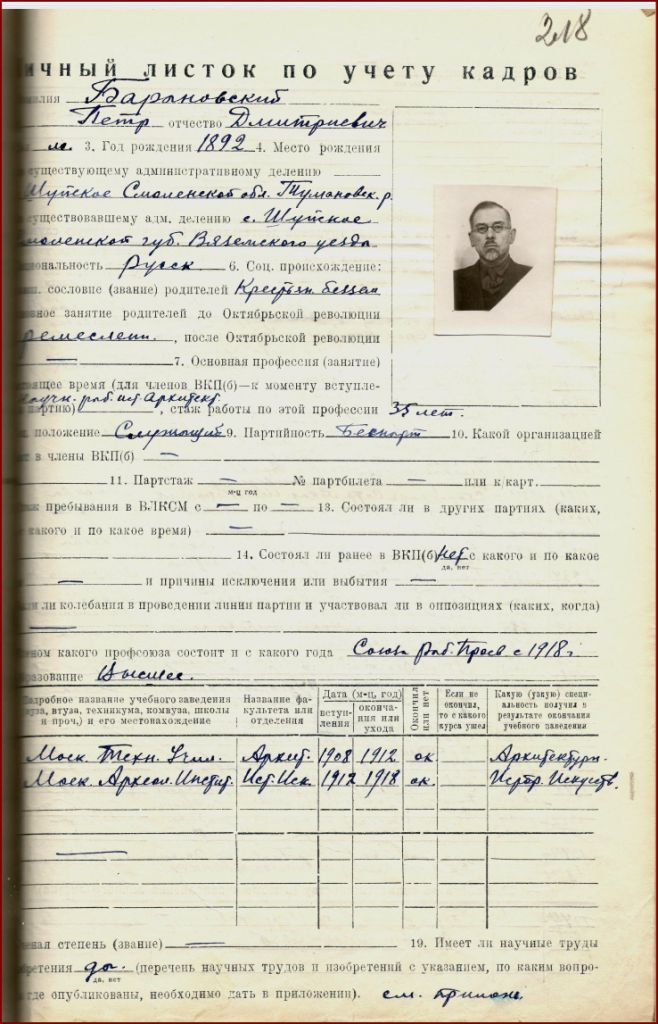 218
ичный листок по учету кадров
илия Барановский
Петр отчество Дмитриевич
м. 3. Год рождения 1892 4. Место рождения
существующему административному делению
Шуйское Смоленской обл. Тумановск. р.
существовавшему адм. делению с. Шуйское
моленской губ. Вяземского уезда
иональность Русск. 6. Соц. происхождение:
сословие (звание) родителей Крестьян. беззем
вное занятие родителей до Октябрьской революции
ремеслен., после Октябрьской революции
— 7. Основная профессия (занятие)
тоящее время (для членов ВКП(б)—к моменту вступле-
научн. раб. ист. Архитект.
партию), стаж работы по этой профессии 35 лет.
положение Служащий 9. Партийность Беспарт 10. Какой организацией
в члены ВКП(б) —
11. Партстаж — № партбилета — или к/карт.
м-ц год
пребывания в ВЛКСМ с — по — 13. Состоял ли в других партиях (каких,
какого и по какое время) —
14. Состоял ли ранее в ВКП(б) нет с какого и по какое
да, нет
— и причины исключения или выбытия —
ли колебания в проведении линии партии и участвовал ли в оппозициях (каких, когда)
—
ном какого профсоюза состоит и с какого года Союза раб. Прос с 1918 г
разование Высшее.
одробное название учебного заведения Название фа- Дата (м-ц, год) Окончил Если не Какую (узкую) специ-
вуза, втуза, техникума, комвуза, школы культета или вступ- оконча- или нет окончил, альность получил в
и проч.) и его местонахождение отделения ления ния или то с какого результате окончания
ухода курса ушел учебного заведения
Моск. Техн. Учил. Архит. 1908 1912 ок Архитектурн.
Моск. Археол. Инстит. Ист. Иск. 1912 1918 ок. Истор. Искусств.
—
еная степень (звание) — 19. Имеет ли научные труды
бретения да. (перечень научных трудов и изобретений с указанием, по каким вопро-
да, нет
где опубликованы, необходимо дать в приложении). см. прилож.